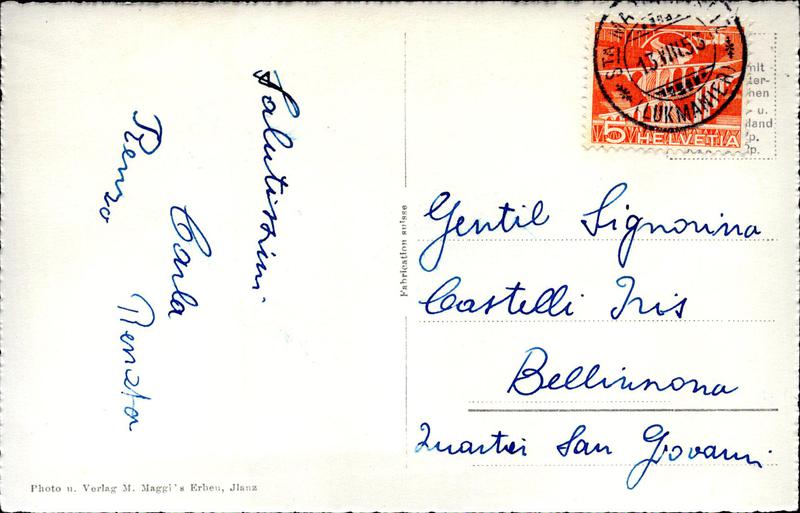 Salutissimi
Carla
Renzo
Renata
Photo u. Verlag M. Maggi's Erben, Jlanz
Fabrication suisse
13.VIII.53
(LUKMANIER)
5 HELVETIA
Gentil Signorina
Castelli Iris
Bellinzona
Quartier San Giovanni